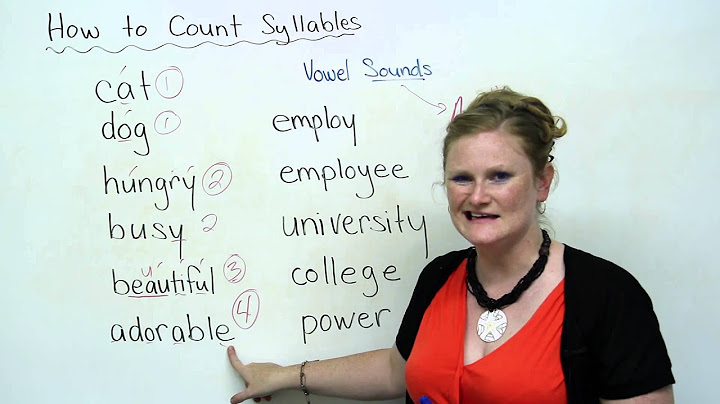 How to Count Syllables
Vowel Sounds
cat 1
dog 1
hungry 2
busy 2
beautiful 3
adorable 4
employ
employee
university
college
power